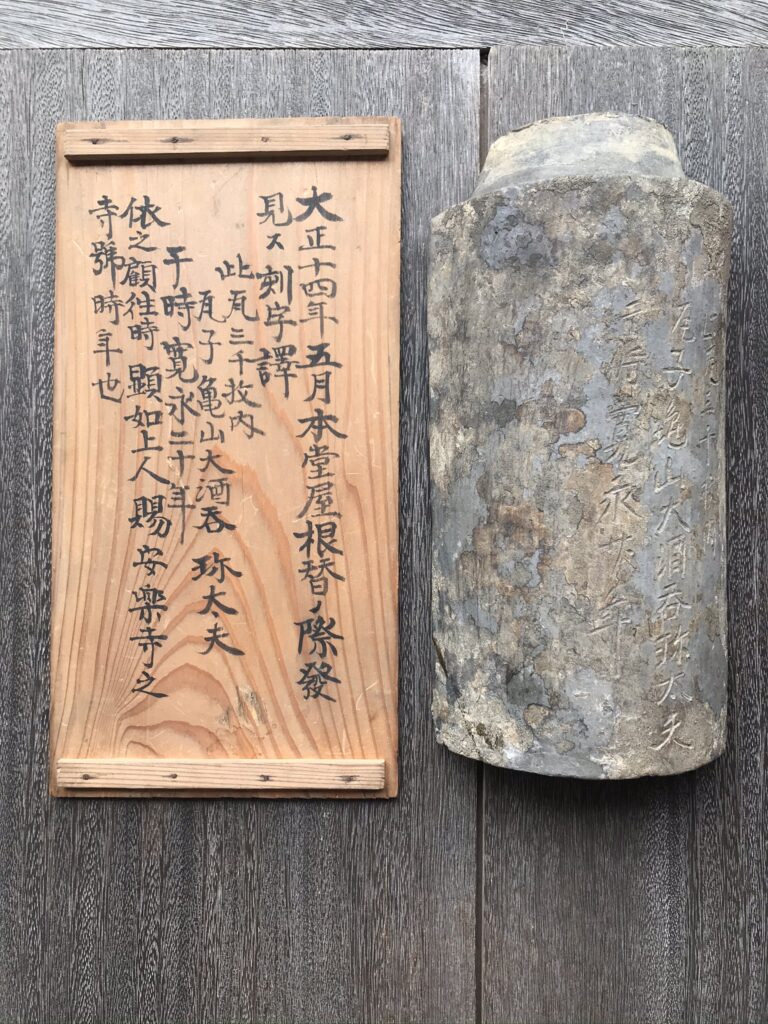 大正十四年五月本堂屋根替ノ際發
見ス刻字譯
此瓦三千枚内
瓦子亀山大酒呑 珎太夫
于時寛永二十年
依之顧往時顕如上人賜安楽寺之
寺號時年也
三千
瓦子亀山大酒呑珎太夫
于時寛永廿年